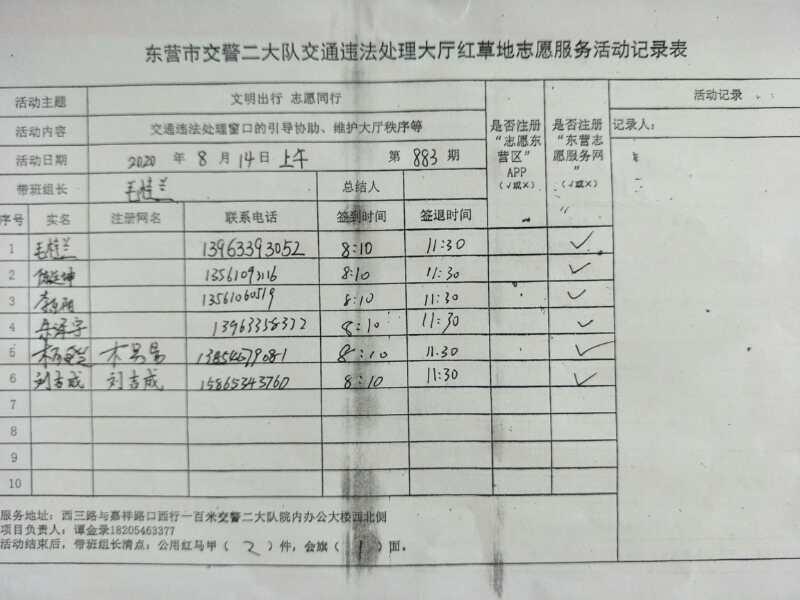 东营市交警二大队交通违法处理大厅红草地志愿服务活动记录表
活动主题 文明出行 志愿同行 是否注册“志愿东营区”APP（√或×） 是否注册“东营志愿服务网”（√或×） 活动记录
活动内容 交通违法处理窗口的引导协助、维护大厅秩序等 记录人：
活动日期 2020 年 8 月 14 日 上午 第 883 期
带班组长 毛桂兰 总结人
序号 实名 注册网名 联系电话 签到时间 签退时间
1 毛桂兰 13963393052 8:10 11:30 ✓
2 13561093116 8:10 11:30 ✓
3 13561060519 8:10 11:30 ✓
4 13963358372 8:10 11:30 ✓
5 木易易 13854679081 8:10 11.30 ✓
6 刘吉成 刘吉成 15865343760 8:10 11:30 ✓
7
8
9
10
服务地址：西三路与嘉祥路口西行一百米交警二大队院内办公大楼西北侧
项目负责人：谭金录18205463377
活动结束后，带班组长清点：公用红马甲（ 2 ）件，会旗（ 1 ）面。